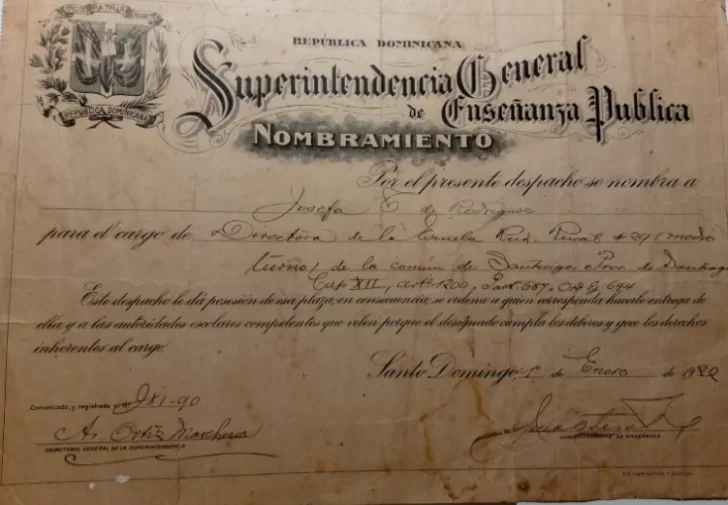 REPÚBLICA DOMINICANA
Superintendencia General
de Enseñanza Publica
NOMBRAMIENTO
REPUBLICA DOMINICANA
Por el presente despacho se nombra a
Josefa de Rodriguez
para el cargo de Directora de la Escuela Rud. Rural # 29 (medio
turno) de la comun de Santiago, Prov. de Santiago
Cap XII, artº 1200,
Este despacho le dá posesión de esa plaza, en consecuencia, se ordena a quien corresponda hacerle entrega de
ella, y a las autoridades escolares competentes que velen porque el designado cumpla los deberes y goce los derechos
inherentes al cargo.
Santo Domingo, 1º de Enero de 1920
Comunicado, y registrado al Nº
SECRETARIO GENERAL DE LA SUPERINTENDENCIA
SUPERINTENDENTE DE ENSEÑANZA